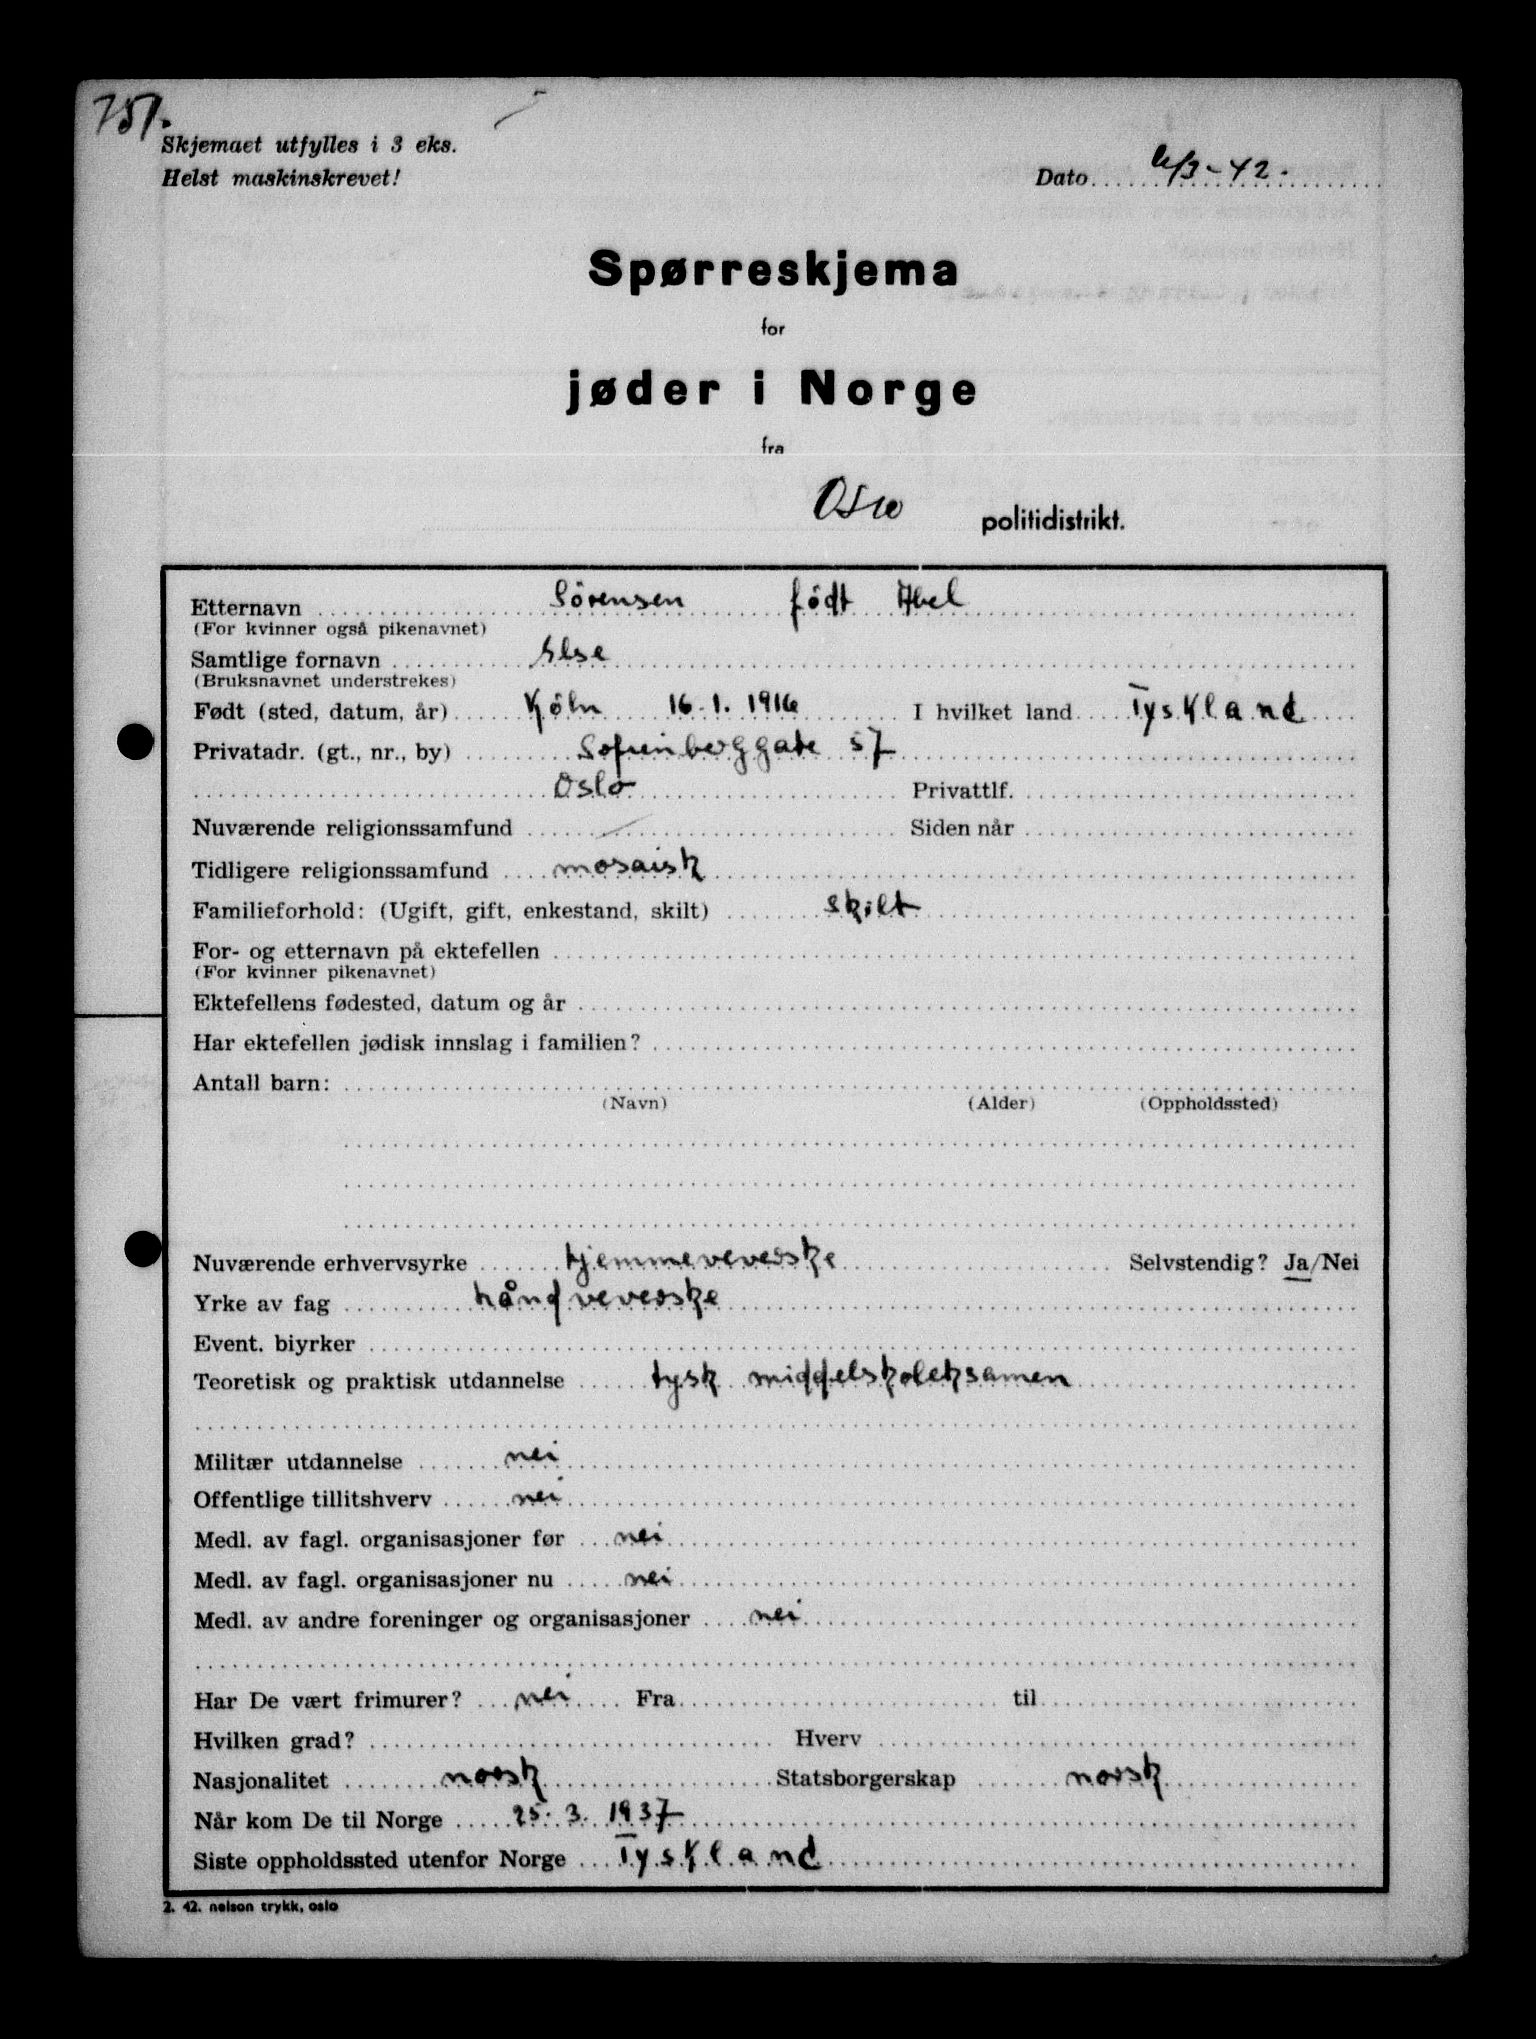 751.
Skjemaet utfylles i 3 eks.
Helst maskinskrevet! Dato 6/3-42.
Spørreskjema
for
jøder i Norge
fra
Oslo politidistrikt.
Etternavn Sörensen født Abel
(For kvinner også pikenavnet)
Samtlige fornavn Else
(Bruksnavnet understrekes)
Født (sted, datum, år) Köln 16.1.1916 I hvilket land Tyskland
Privatadr. (gt., nr., by) Sofienberggate 57
Oslo Privattlf.
Nuværende religionssamfund Siden når
Tidligere religionssamfund mosaisk
Familieforhold: (Ugift, gift, enkestand, skilt) skilt
For- og etternavn på ektefellen
(For kvinner pikenavnet)
Ektefellens fødested, datum og år
Har ektefellen jødisk innslag i familien?
Antall barn:
(Navn) (Alder) (Oppholdssted)
Nuværende erhvervsyrke hjemmeveverske Selvstendig? Ja/Nei
Yrke av fag håndveverske
Event. biyrker
Teoretisk og praktisk utdannelse tysk middelskoleksamen
Militær utdannelse nei
Offentlige tillitshverv nei
Medl. av fagl. organisasjoner før nei
Medl. av fagl. organisasjoner nu nei
Medl. av andre foreninger og organisasjoner nei
Har De vært frimurer? nei Fra til
Hvilken grad? Hverv
Nasjonalitet norsk Statsborgerskap norsk
Når kom De til Norge 25.3.1937
Siste oppholdssted utenfor Norge Tyskland
2. 42. nelson trykk, oslo